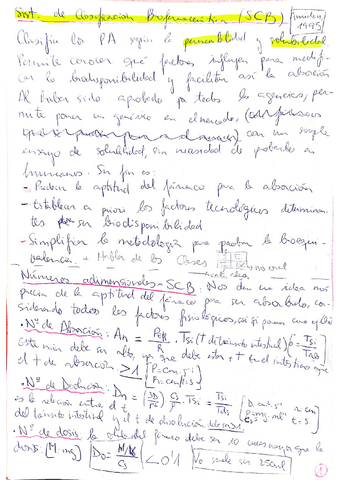 Sist. de Clasificación Biofarmacéutica (SCB) Amidon 1995
Clasifica los PA según la permeabilidad y solubilidad
Permite conocer qué factores influyen para modifi-
car la biodisponibilidad y facilitar así la absorción
Al haber sido aprobado por todas las agencias, per-
mite poner un genérico en el mercado, con un simple
ensayo de solubilidad, sin necesidad de probarlo en
humanos. Su fin es:
- Predecir la aptitud del fármaco para la absorción
- Establecer a priori los factores tecnológicos determinan-
tes en su biodisponibilidad
- Simplificar la metodología para probar la bioequi-
valencia. + Hablar de las Clases
Números adimensionales - SCB: Nos dan una idea más
precisa de la aptitud del fármaco para ser absorbido, con-
siderando todos los factores fisiológicos, así
• Nº de Absorción: An = Peff/R · Tsi (t de tránsito intestinal) = Tsi/Tabs
Este núm debe ser alto, ya que debe estar + t en el intestino que
el t de absorción >1
• Nº de Disolución: Dn = Tsi = Tsi/Tdis
es la relación entre el t
del tránsito intestinal y el t de disolución
• Nº de dosis: la del fármaco debe ser 10 veces mayor que la
dosis [M: mg] Do = M/V/Cs <0'1 Vo suele ser 250ml
1